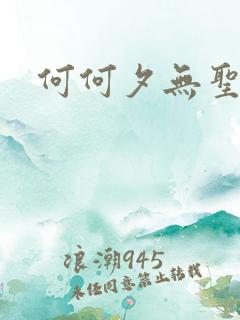 何何夕無聖
浪潮945
未经同意禁止转载